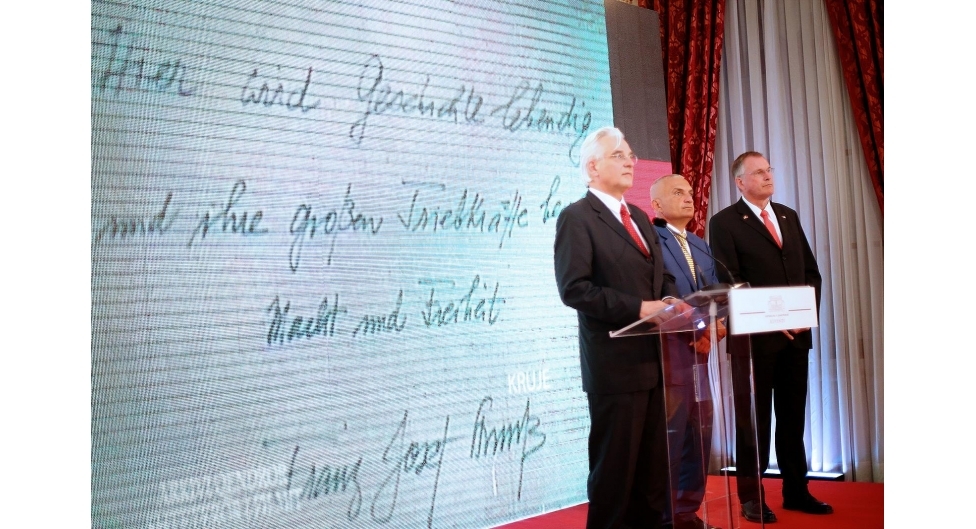 Hier wird Geschichte lebendig
und ihre großen Triebkräfte be
Macht und Freiheit
KRUJË
Franz Josef Strauß